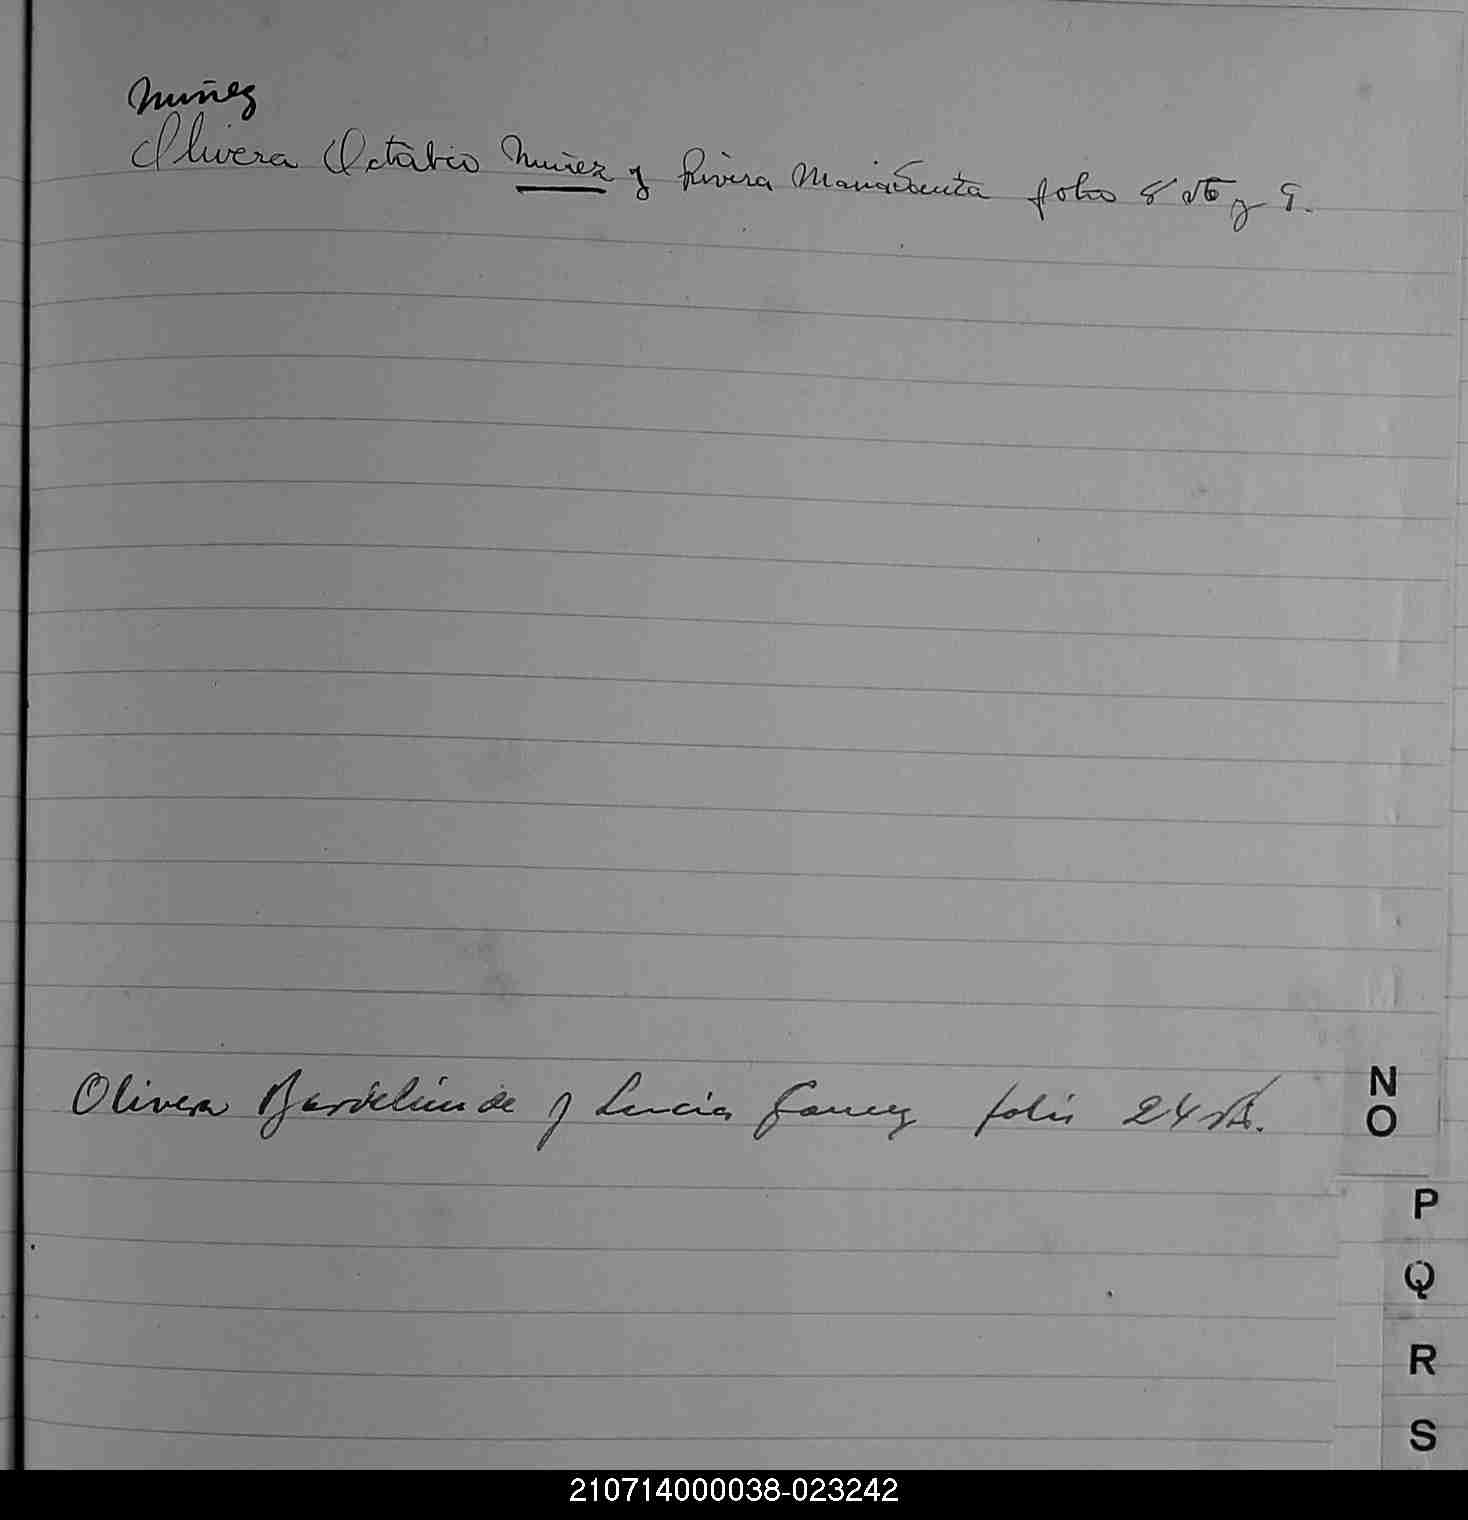 Nuñez
Olivera Octabio Nuñez y Rivera Maria Santa folio 8 vto y 9.
Olivera y Lucia Gomez folio 24 vto.
N
O
P
Q
R
S
210714000038-023242